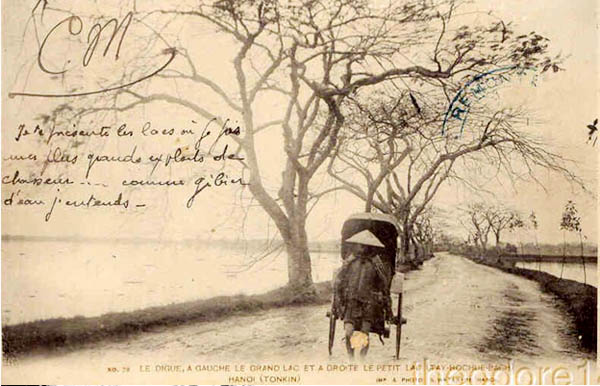 CM
Je te présente les lacs où je fais
mes plus grands exploits de
chasseur... comme gibier
d'eau j'entends -
No. 78 LE DIGUE, A GAUCHE LE GRAND LAC ET A DROITE LE PETIT LAC
HANOI (TONKIN)
IMP. & PHOTO